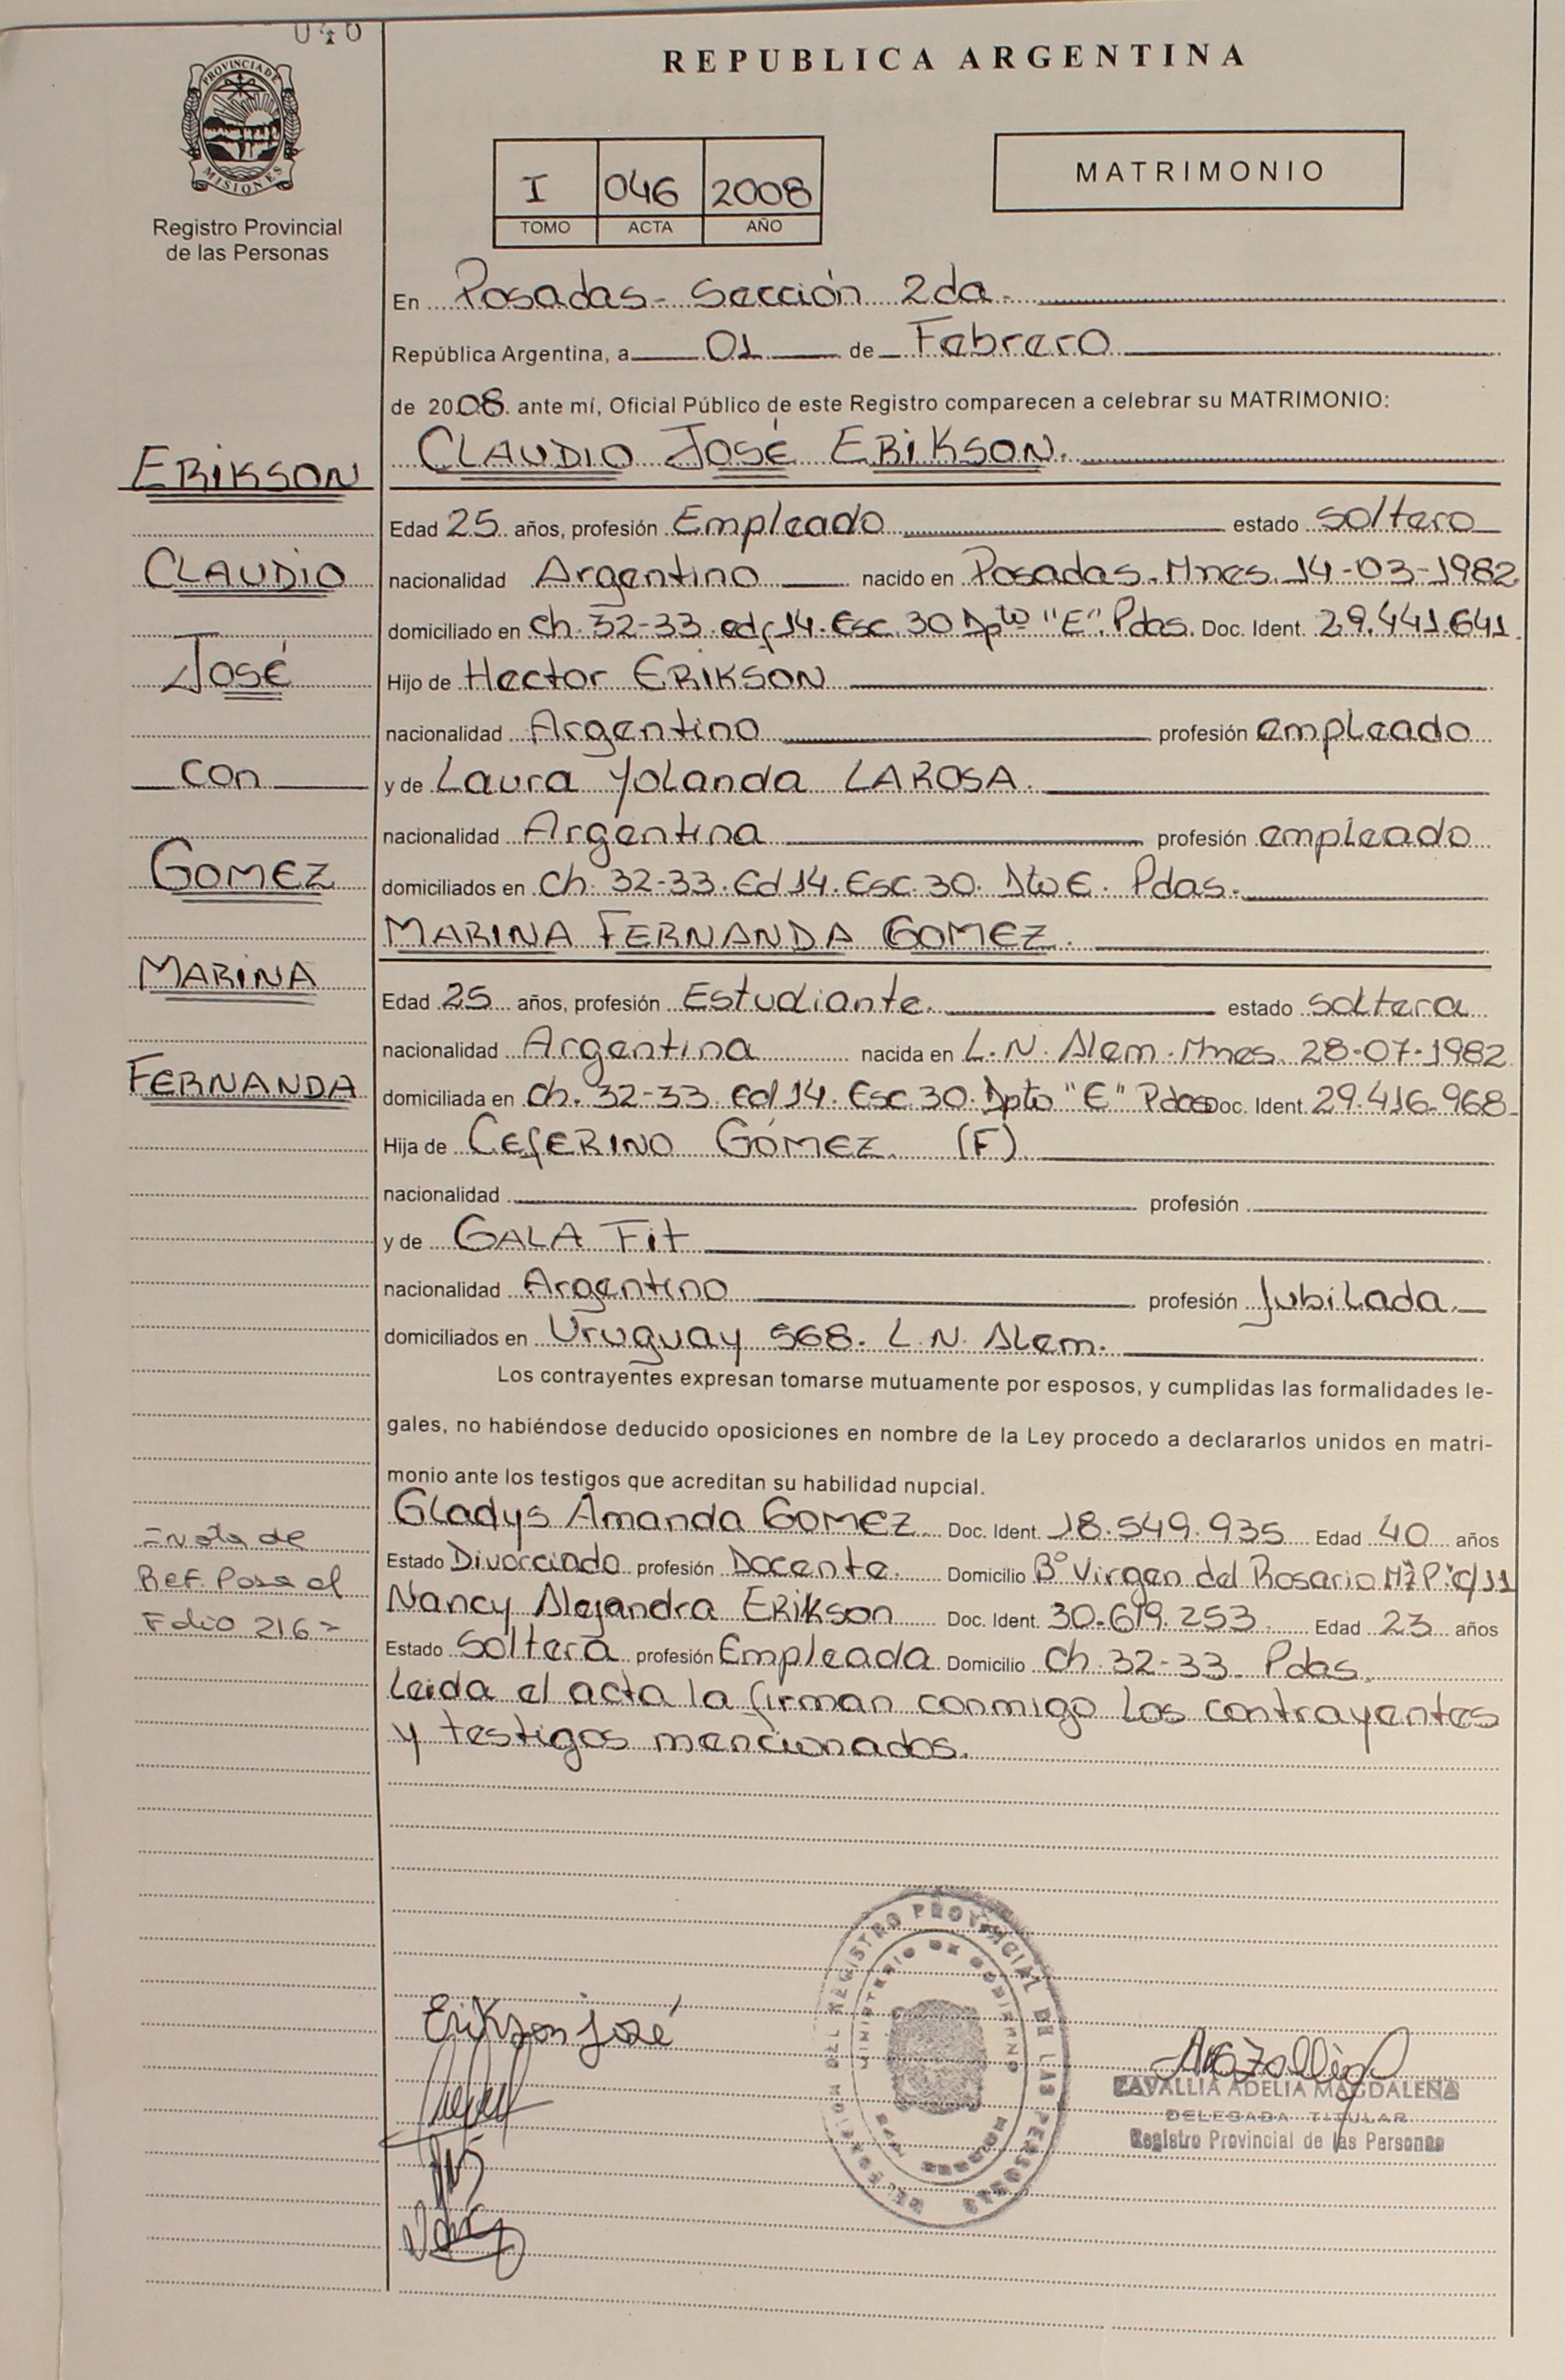 REPUBLICA ARGENTINA
PROVINCIA DE
MISIONES
Registro Provincial
de las Personas
I 046 2008
TOMO ACTA AÑO
MATRIMONIO
En Posadas - Sección 2da.
República Argentina, a 01 de Febrero
de 2008. ante mí, Oficial Público de este Registro comparecen a celebrar su MATRIMONIO:
CLAUDIO JOSÉ ERIKSON.
ERIKSON
Edad 25 años, profesión Empleado estado soltero
CLAUDIO
nacionalidad Argentino nacido en Posadas. Mnes. 14-03-1982
domiciliado en ch. 32-33. edf 14. Esc. 30 Dpto "E". Pdas. Doc. Ident. 29.441.641
JOSÉ
Hijo de Hector ERIKSON
nacionalidad Argentino profesión empleado
con
y de Laura Yolanda LAROSA.
nacionalidad Argentina profesión empleado
GOMEZ
domiciliados en ch. 32-33. Ed 14. Esc. 30. Dto E. Pdas.
MARINA FERNANDA GOMEZ.
MARINA
Edad 25 años, profesión Estudiante. estado soltera
nacionalidad Argentina nacida en L. N. Alem. Mnes. 28-07-1982
FERNANDA
domiciliada en ch. 32-33. Ed 14. Esc 30. Dpto "E" Pdas Doc. Ident. 29.416.968
Hija de CEFERINO GÓMEZ. (F).
nacionalidad profesión
y de GALA Fit
nacionalidad Argentino profesión Jubilada.
domiciliados en Uruguay 568. L. N. Alem.
Los contrayentes expresan tomarse mutuamente por esposos, y cumplidas las formalidades le-
gales, no habiéndose deducido oposiciones en nombre de la Ley procedo a declararlos unidos en matri-
monio ante los testigos que acreditan su habilidad nupcial.
Gladys Amanda GOMEZ Doc. Ident. 18.549.935 Edad 40 años
Estado Divorciado profesión Docente. Domicilio B° Virgen del Rosario Mz P. c/11
Nancy Alejandra ERIKSON Doc. Ident. 30.619.253. Edad 23 años
Estado Soltera profesión Empleada Domicilio Ch. 32-33. Pdas.
Leida el acta la firman conmigo los contrayentes
y testigos mencionados.
nota de
Ref. Pasa al
Folio 216
Erikson José
DEL REGISTRO PROVINCIAL DE LAS PERSONAS
MINISTERIO DE GOBIERNO
CAVALLIA ADELIA MAGDALENA
DELEGADA TITULAR
Registro Provincial de las Personas